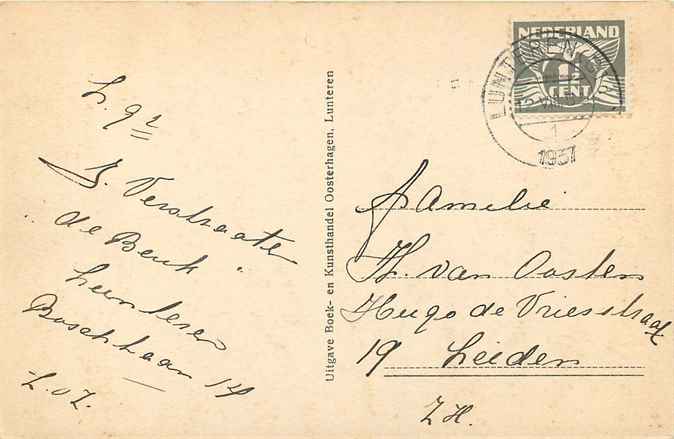 NEDERLAND
1½
CENT
LUNTEREN
1937
J. Verstraaten
"de Beuk"
Lunteren
Boschlaan 14
Uitgave Boek- en Kunsthandel Oosterhagen, Lunteren
Familie
Th. van Oosten
Hugo de Vriesstraat
19 Leiden
Z.H.